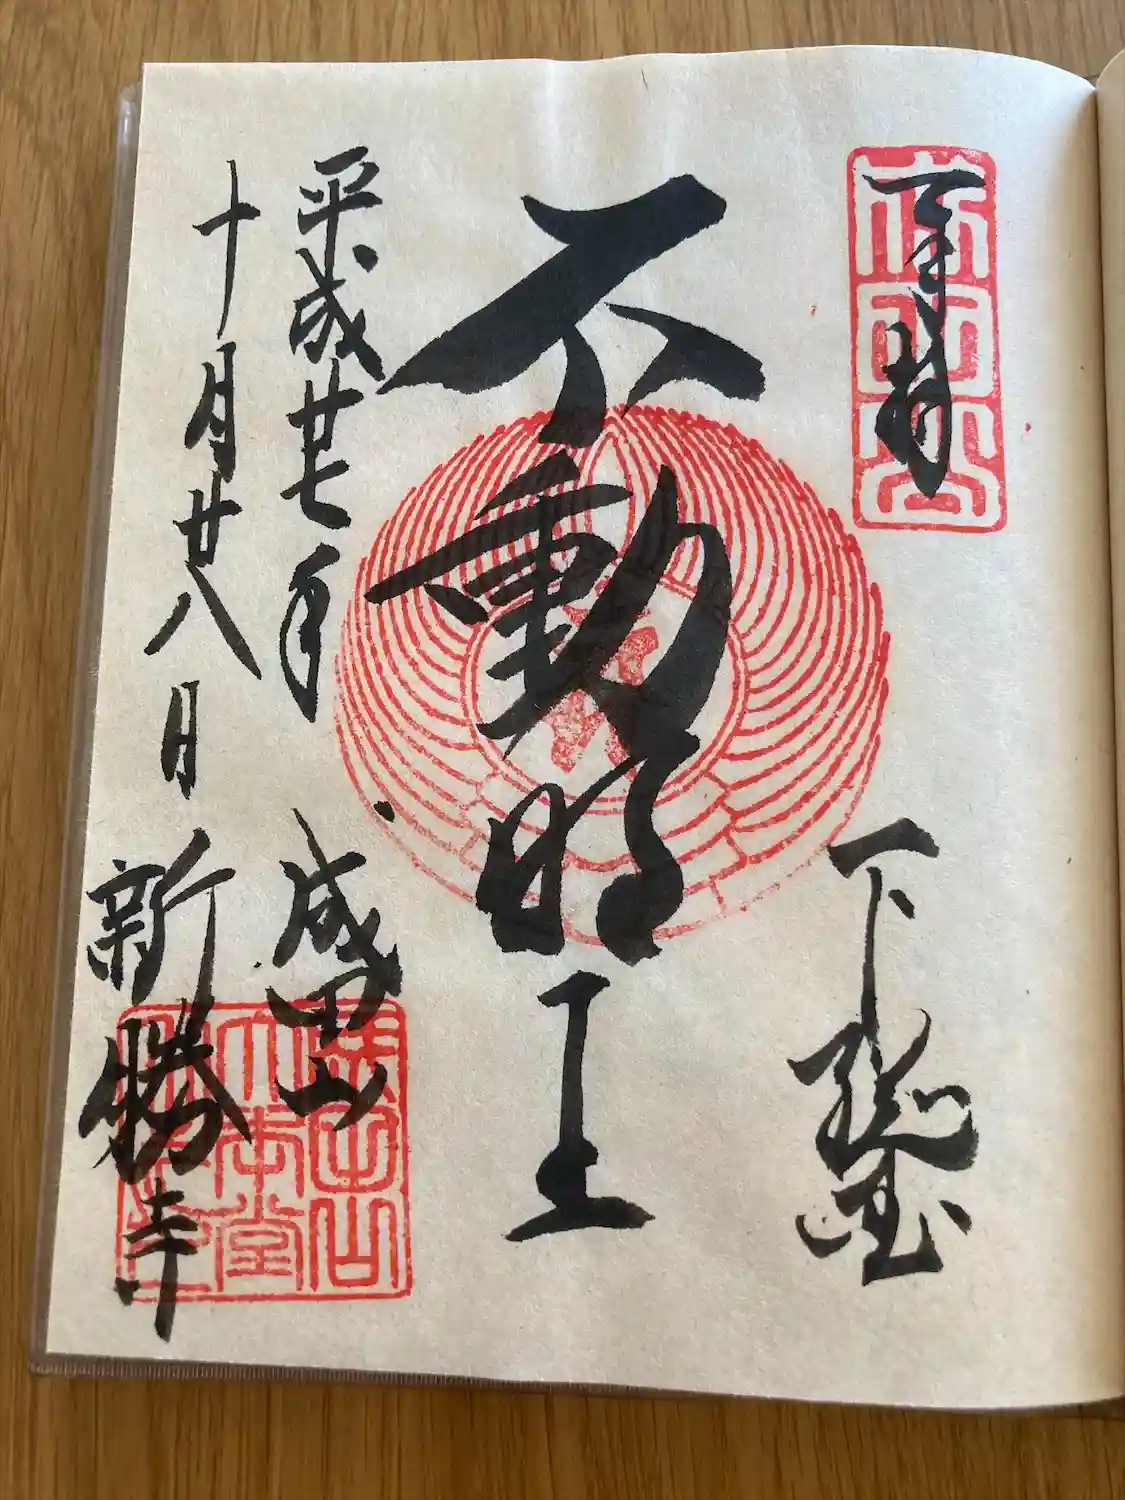 奉拝
下総国
不動明王
平成廿七年
十月廿八日
成田山
新勝寺
成田山
大本堂